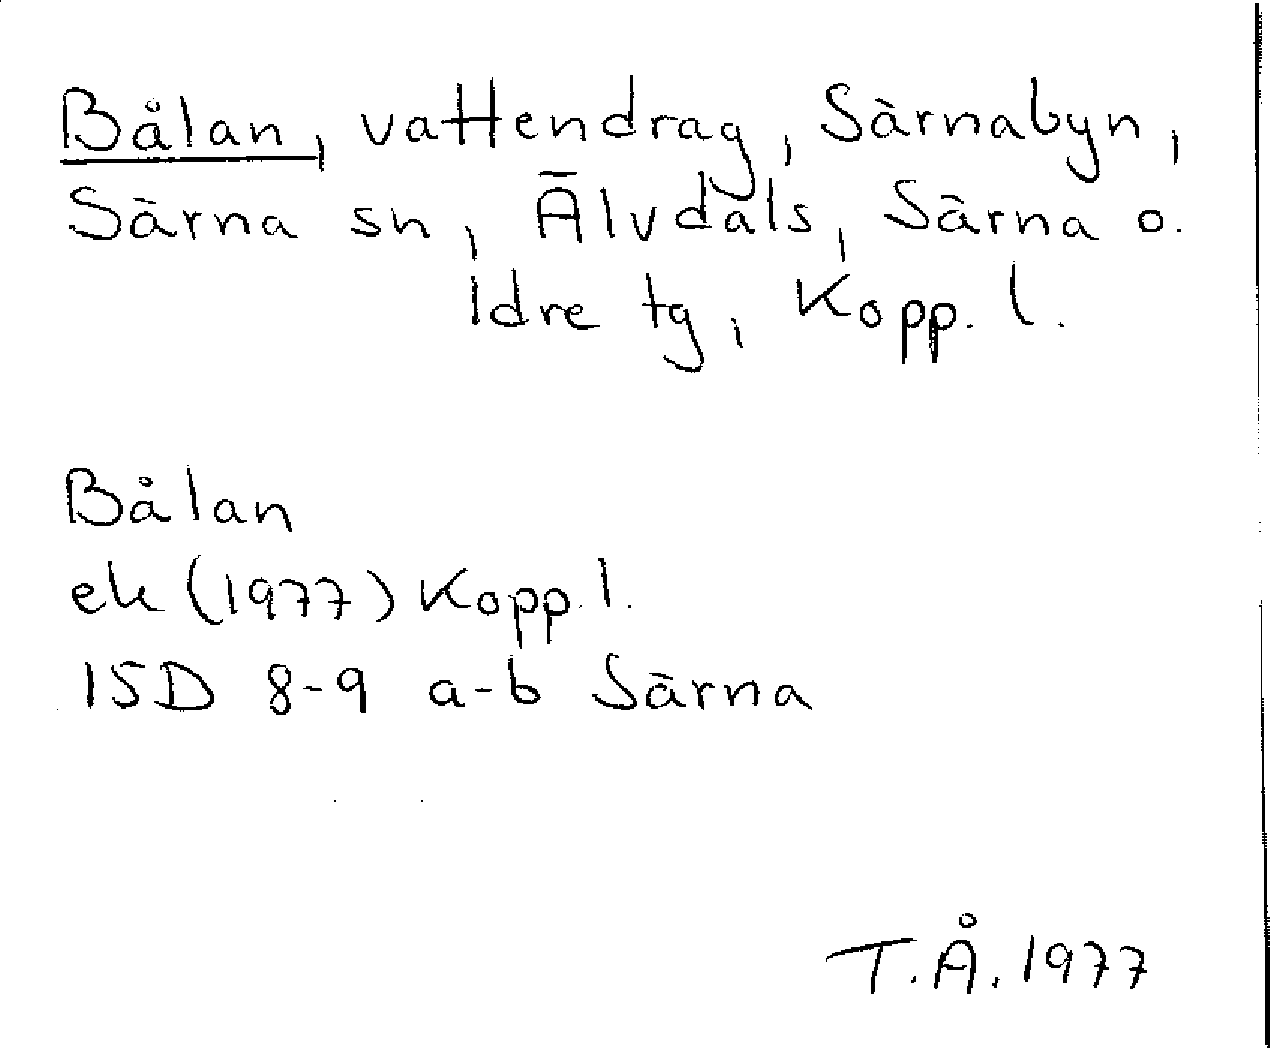 Bålan, vattendrag, Särnabyn,
Särna sn, Älvdals, Särna o.
Idre tg, Kopp. l.
Bålan
ek (1977) Kopp. l.
15D 8-9 a-b Särna
T.Å. 1977